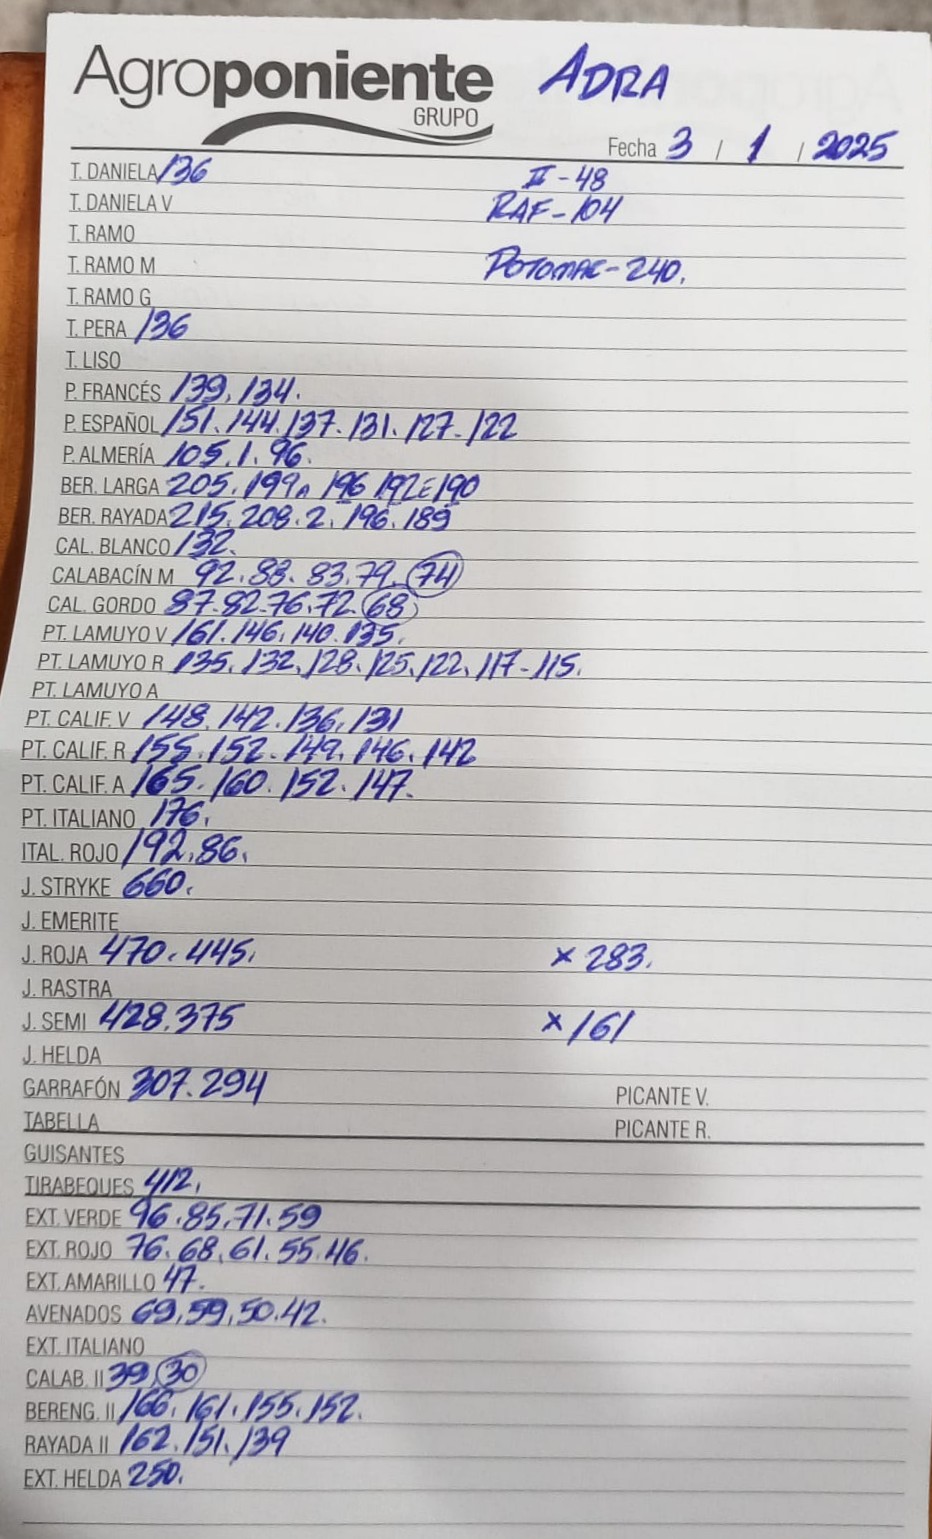 Agroponiente ADRA
GRUPO
Fecha 3 / 1 / 2025
T. DANIELA 136 II - 48
T. DANIELA V RAF - 104
T. RAMO
T. RAMO M POTOMAC - 240.
T. RAMO G
T. PERA 136
T. LISO
P. FRANCÉS 139. 134.
P. ESPAÑOL 151. 144. 137. 131. 127. 122
P. ALMERÍA 105. 1. 96.
BER. LARGA 205. 199A 196 192E 190
BER. RAYADA 215. 208. 2. 196. 189
CAL. BLANCO 132.
CALABACÍN M 92. 88. 83. 79. 74
CAL. GORDO 87. 82. 76. 72. 68
PT. LAMUYO V 161. 146. 140. 135.
PT. LAMUYO R 135. 132. 128. 125. 122. 117 - 115.
PT. LAMUYO A
PT. CALIF. V 148. 142. 136. 131
PT. CALIF. R 155. 152. 149. 146. 142
PT. CALIF. A 165. 160. 152. 147.
PT. ITALIANO 176.
ITAL. ROJO 192. 86.
J. STRYKE 660.
J. EMERITE
J. ROJA 470. 445. x 283.
J. RASTRA
J. SEMI 428. 375 x 161
J. HELDA
GARRAFÓN 307. 294 PICANTE V.
TABELLA PICANTE R.
GUISANTES
TIRABEQUES 412.
EXT. VERDE 96. 85. 71. 59
EXT. ROJO 76. 68. 61. 55. 46.
EXT. AMARILLO 47.
AVENADOS 69. 59. 50. 42.
EXT. ITALIANO
CALAB. II 39. 30
BERENG. II 166. 161. 155. 152.
RAYADA II 162. 151. 139
EXT. HELDA 250.